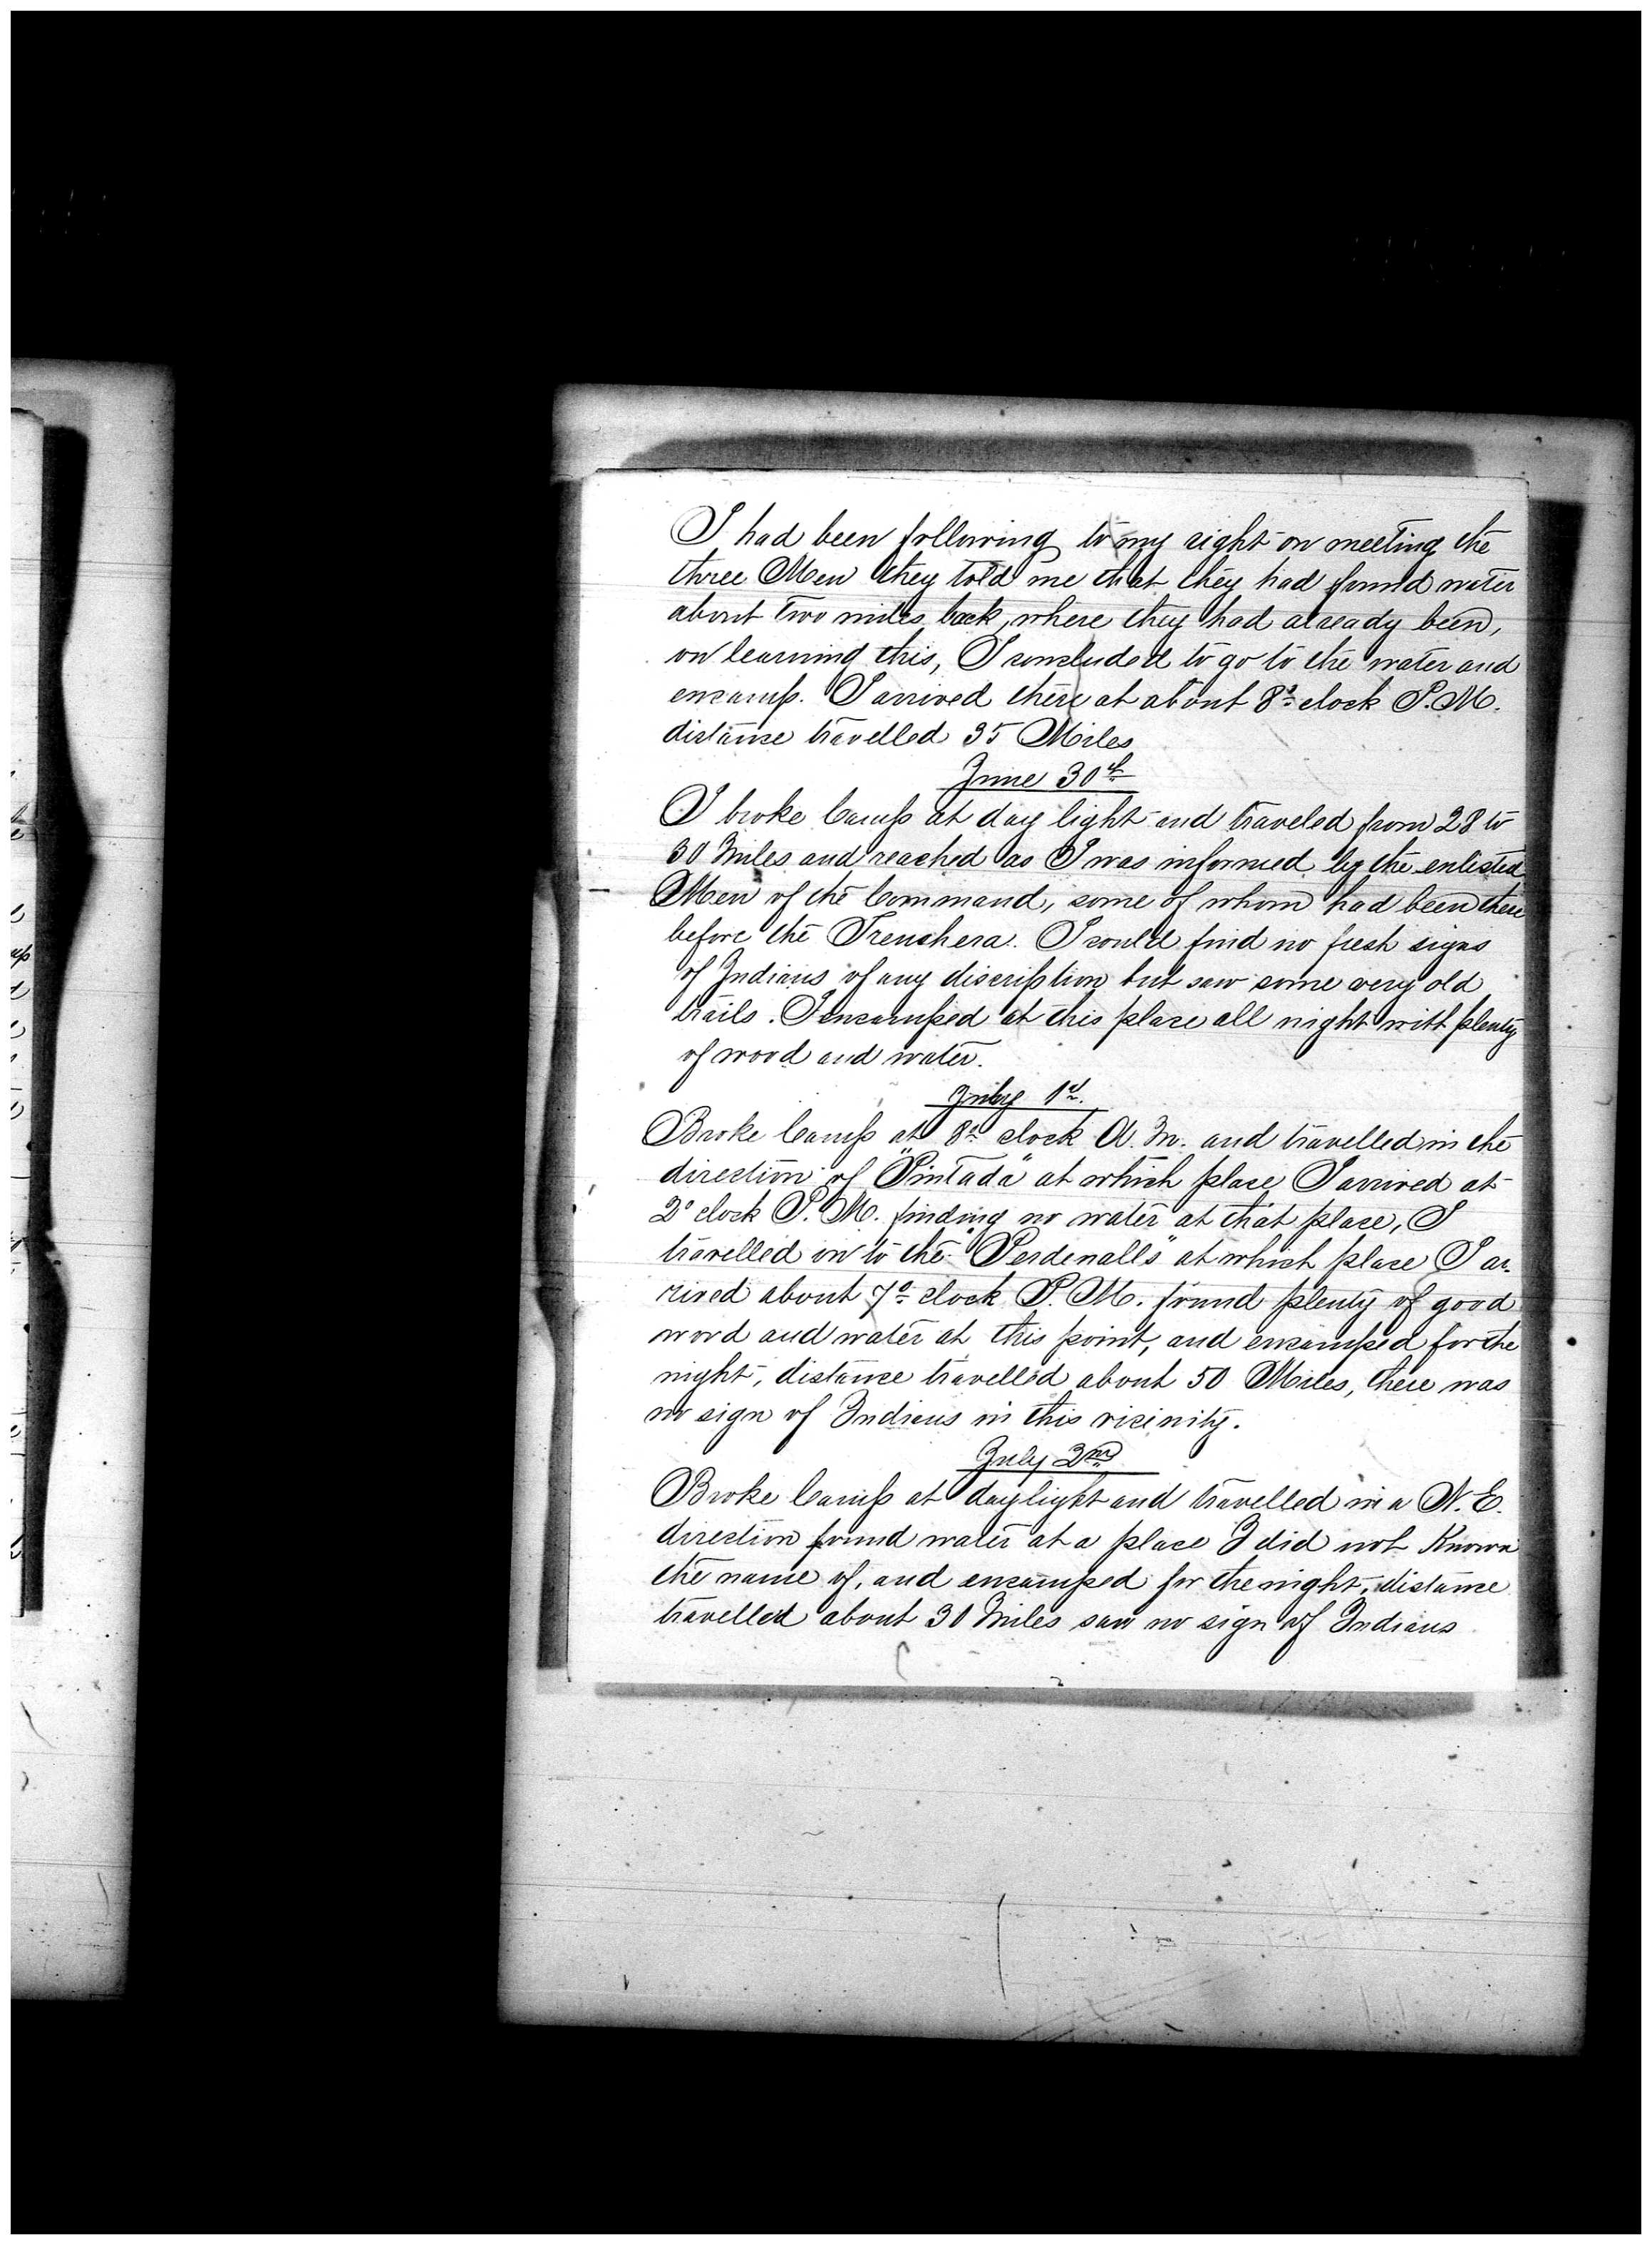 I had been following to my right on meeting the
three Men they told me that they had found water
about two miles back, where they had already been,
on learning this, I concluded to go to the water and
encamp. I arrived there at about 8o clock P.M.
distance travelled 35 Miles
June 30th
I broke Camp at day light and traveled from 28 to
30 Miles and reached as I was informed by the enlisted
Men of the Command, some of whom had been there
before the Trenchera. I could find no fresh signs
of Indians of any discription but saw some very old
trails. I encamped at this place all night with plenty
of wood and water.
July 1st.
Broke Camp at 8o clock A.M. and travelled in the
direction of "Pintada" at which place I arrived at
2o clock P.M. finding no water at that place, I
travelled on to the "Perdenalls" at which place I ar-
rived about 7o clock P.M. found plenty of good
wood and water at this point, and encamped for the
night, distance travelled about 50 Miles, there was
no sign of Indians in this vicinity.
July 2nd
Broke Camp at daylight and travelled in a N.E.
direction found water at a place I did not Known
the name of, and encamped for the night, distance
travelled about 30 Miles saw no sign of Indians